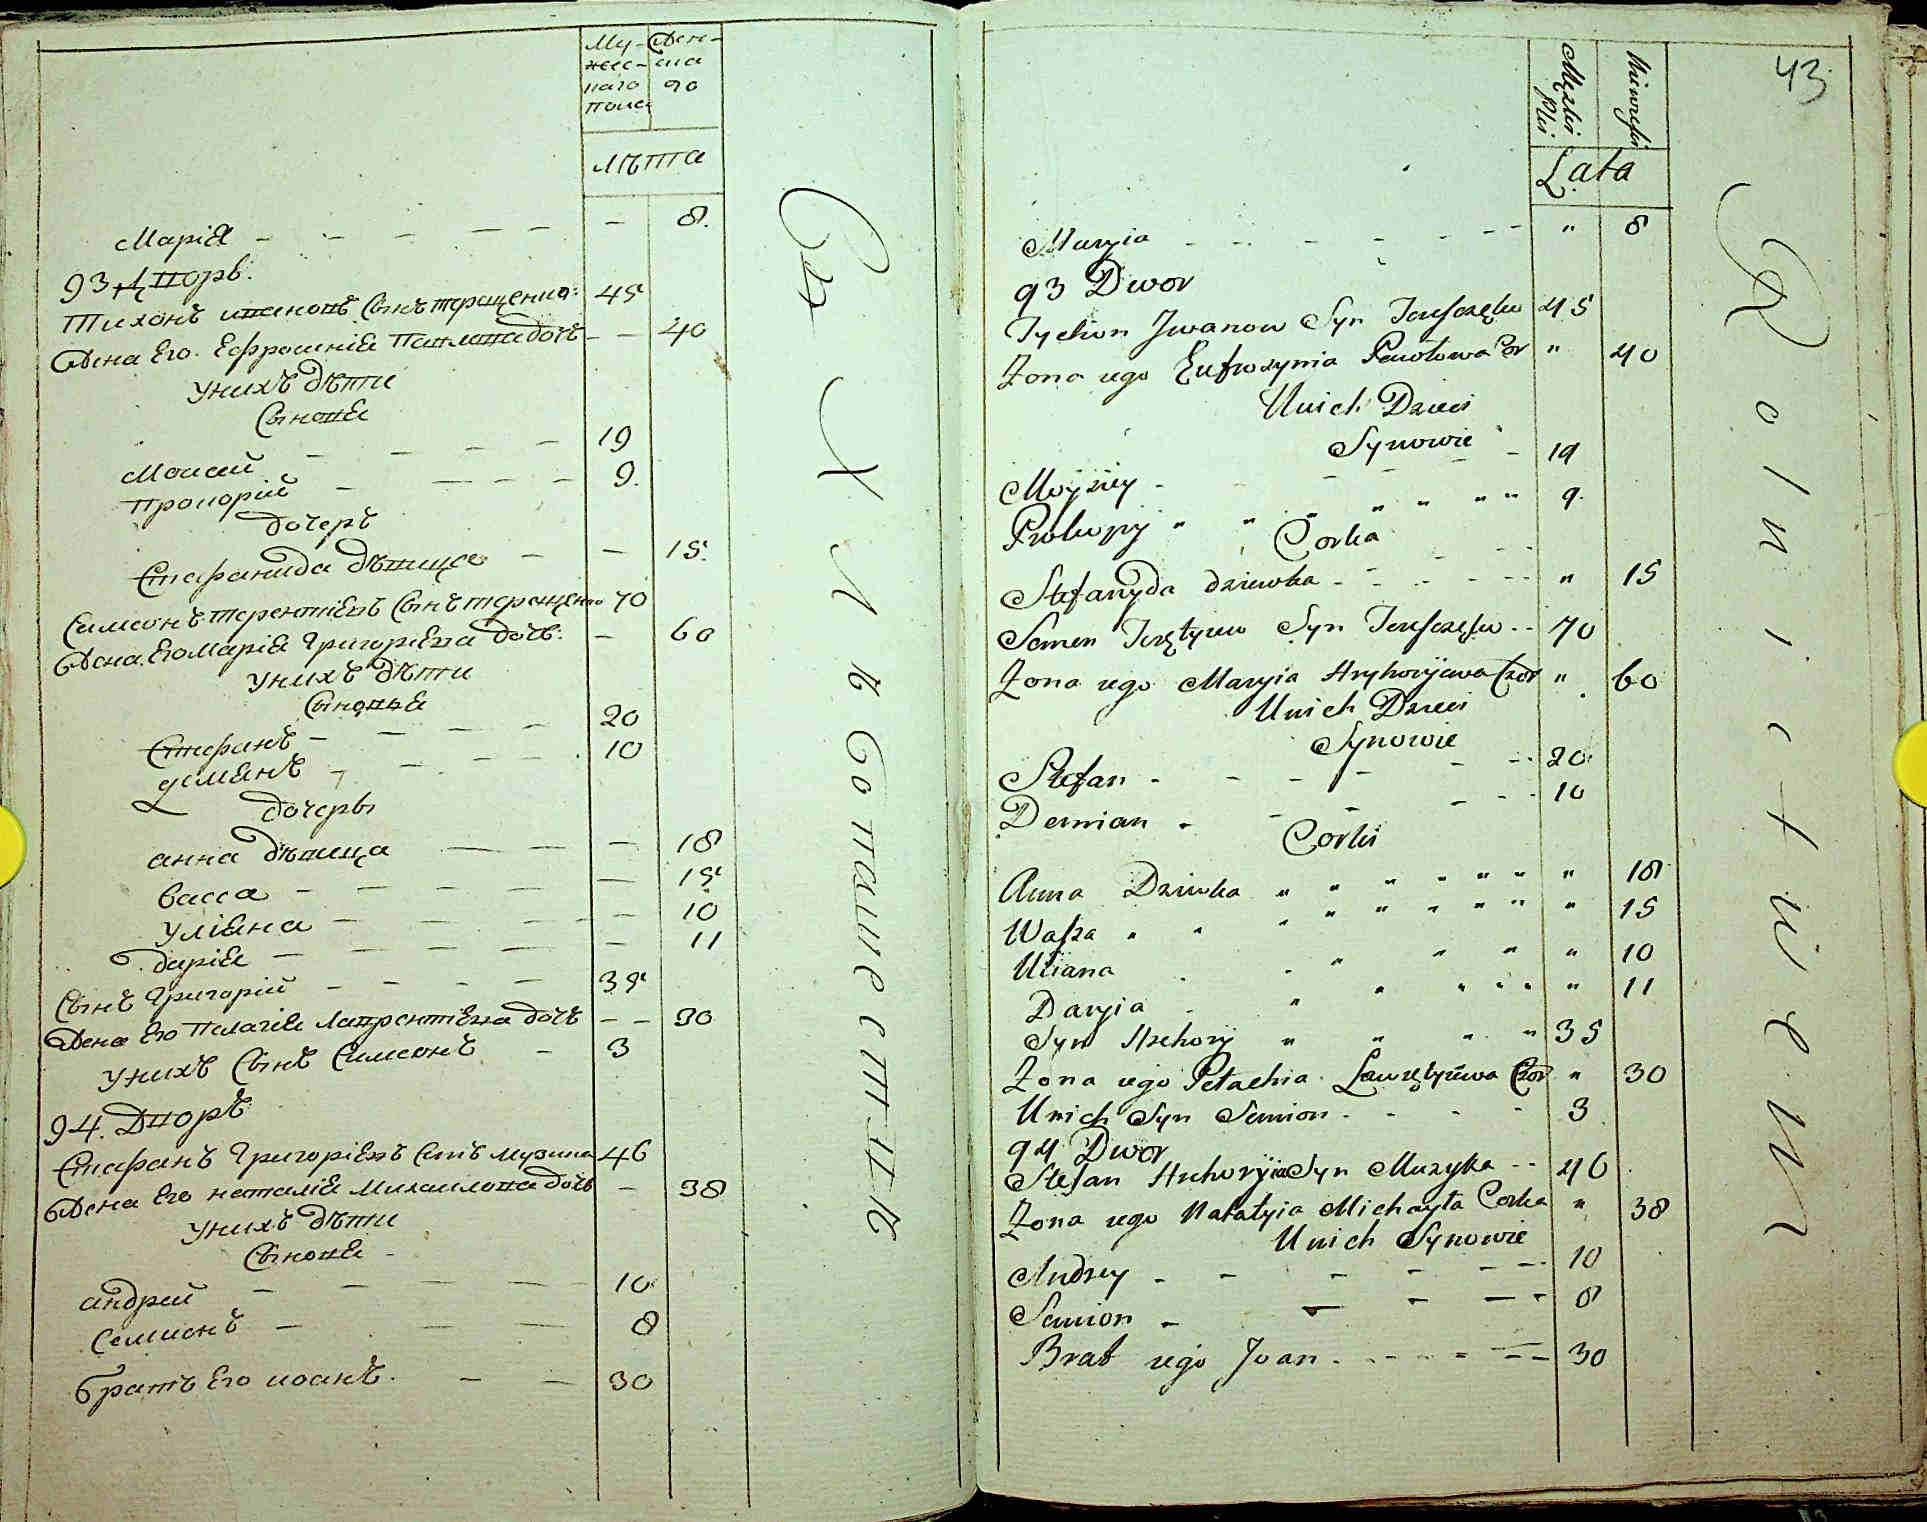 Му- Жен-
жес- ска
каго го
полу
лѣта
Марія - - - - - - - 8.
93 дворъ.
Тихонъ ивановъ Сынъ терещенко: 45
Жена Его Ефросинія Павлова дочь - - 40
Унихъ дѣти
Сыновя
Моисей - - - - 19
прокорій - - - - - 9.
дочеръ
Стефанида дѣвица - - 15.
Симеонъ терентіевъ Сынъ терещенко 70
Жена Его Марія Григоріева дочь. - 60
Унихъ дѣти
Сыновья
Стефанъ - - - - - 20
демянъ - - - - - 10
дочеры
анна дѣвица - - - - 18
васса - - - - - - 15
Уліяна - - - - - 10
дарія - - - - - 11
Сынъ Григорій - - - - 35
Жена Его Пелагія Лаврентіева дочь - - 30
Унихъ Сынъ Симеонъ - 3
94. Дворъ
Стефанъ Григоріевъ Синъ музика 46
Жена Его наталія Михаилова дочь - 38
Унихъ дѣти
Сыновя -
андрей - - - - 10
Семионъ - - - - 8
братъ Его иоанъ. - - 30
Сех Хлѣбопашествѣ
43
Męskiej Płci
Niewieściej
Lata
Maryia - - - - - - - " 8
93 Dwor
Tychon Jwanow Syn Tereszczęko 45
Żona iego Eufrozynia Pawłowa Cor " 40
Unich Dzieci
Synowie
Moyziey - - - - 19
Prokopiy " " " " " " " 9.
Corka
Stefanyda dziewka - - - - - - " 15
Semen Teręty­iew Syn Tereszczęko - - 70
Żona iego Maryia Hryhoryiewa Czor " 60
Unich Dzieci
Synowie
Stefan - - - - - - 20
Demian - - - - - - 10
Corki
Anna Dziewka " " " " " " " 18
Wassa " " " " " " " " " 15
Uliana - - " " " " 10
Daryia - " " " " " " 11
Syn Hrehory " " " " 35
Żona iego Pełachia Ławrętyiewa Czor " 30
Unich Syn Semion - - - - 3
94 Dwor
Stefan Hrehoryiew Syn Muzyka - - 46
Żona iego Natałyia Michayła Corka " 38
Unich Synowie
Andrey - - - - - - 10
Semion - - - - - 8
Brat iego Joan - - - - - - - 30
Rolnictwem